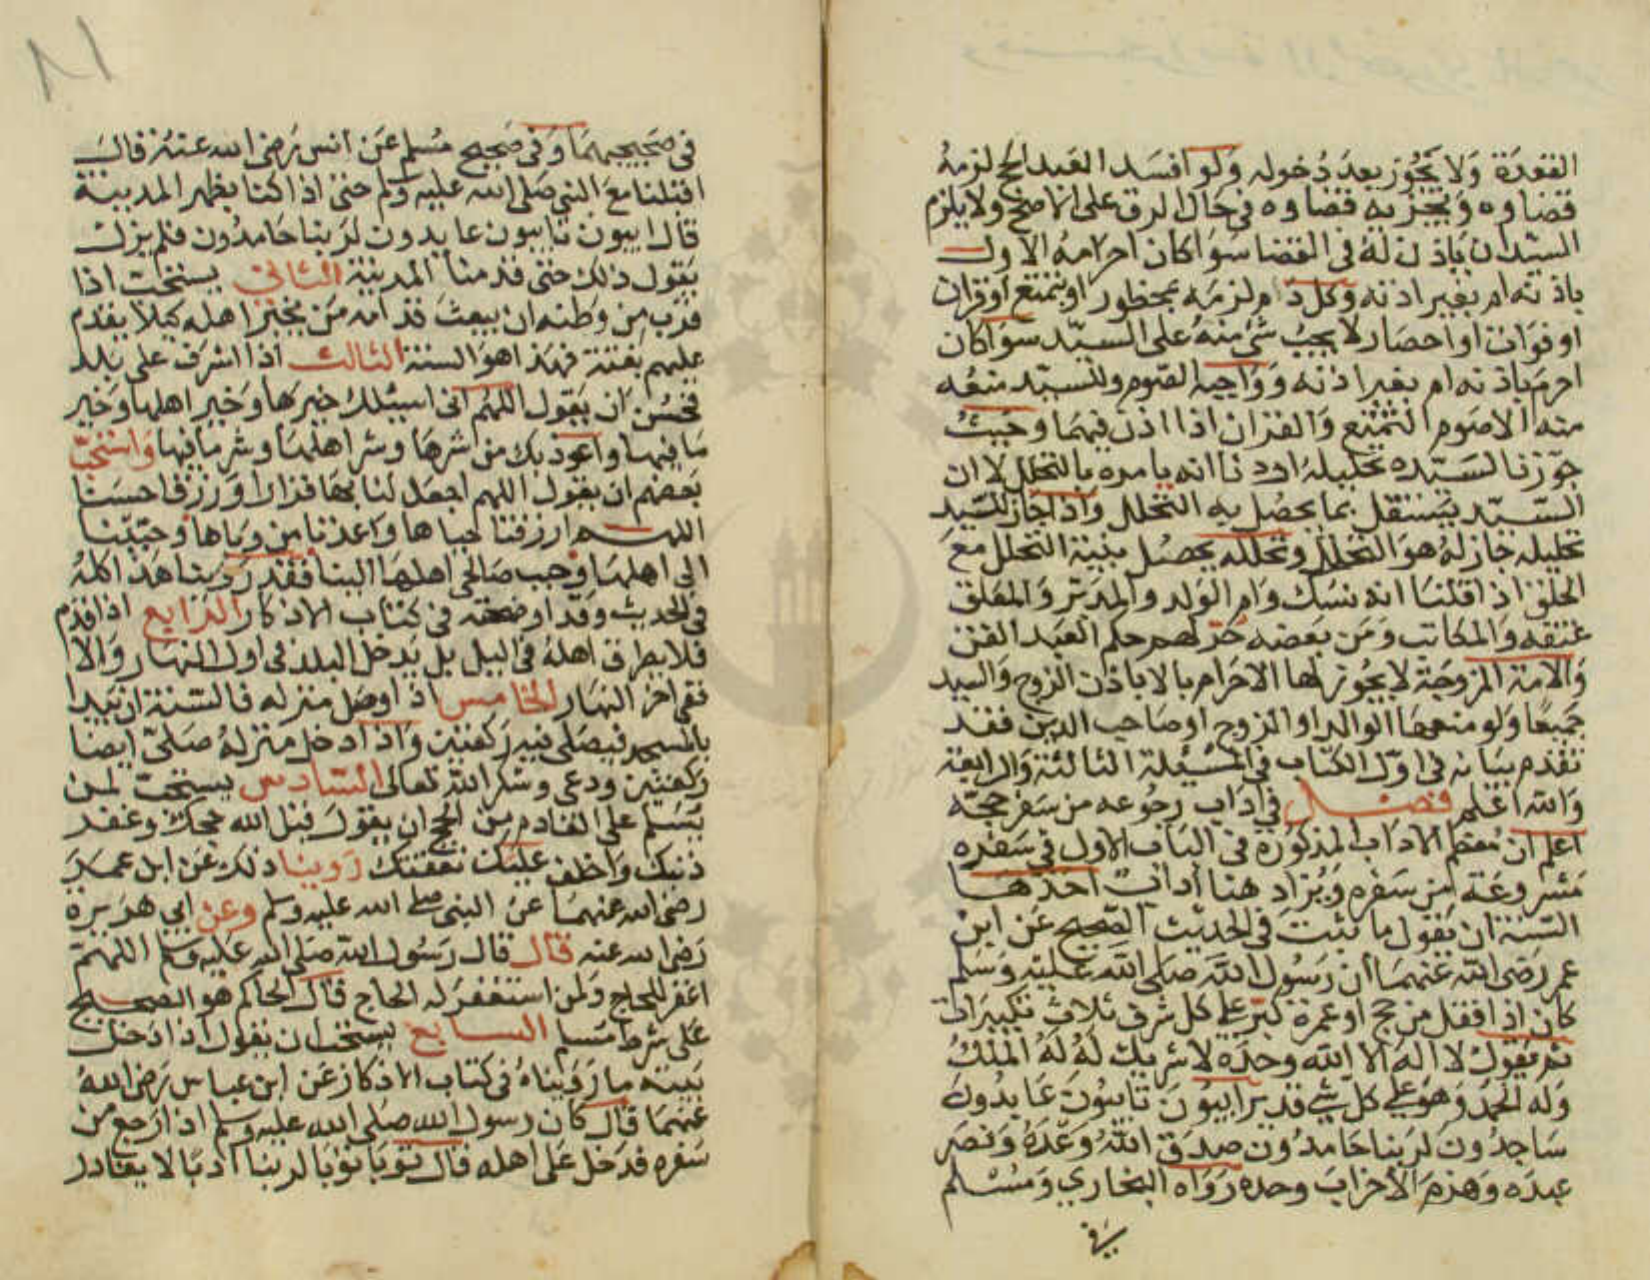 القعدة ولا يجوز بعد دخوله ولو افسد العبد الحج لزمه
قضاوه ويجزيه قضاوه في حال الرق على الاصح ولا يلزم
السيد ان ياذن له في القضا سوا كان احرامه الاول
باذنه ام بغير اذنه وكل دم لزمه بمحظور او تمتع او قران
او فوات او احصار لا يجب شي منه على السيد سوا كان
احرم باذنه ام بغير اذنه وواجبه الصوم وللسيد منعه
منه الا صوم التمتع والقران اذا اذن فيهما وحيث
جوزنا للسيد تحليله اردنا انه يامره بالتحلل لا ان
السيد يستقل بما يحصل به التحلل واذا جاز للسيد
تحليله جاز له هو التحلل وتحلله يحصل بنية التحلل مع
الحلق اذا قلنا انه نسك وام الولد والمدبر والمعلق
عتقه والمكاتب ومن بعضه حر لهم حكم العبد القن
والامة المزوجة لا يجوز لها الاحرام بالا باذن الزوج والسيد
جميعا ولو منعها الوالد او الزوج او صاحب الدين فقد
تقدم بيانه في اول الكتاب في المسئلة الثالثة والرابعة
والله اعلم فصل في اداب رجوعه من سفر حجه
اعلم ان معظم الاداب المذكورة في الباب الاول في سفره
مشروعة من سفره ويزاد هنا اداب احدها
السنة ان يقول ما ثبت في الحديث الصحيح عن ابن
عمر رضى الله عنهما ان رسول الله صلى الله عليه وسلم
كان اذا قفل من حج او عمرة كبر على كل شرف ثلاث تكبيرات
ثم يقول لا اله الا الله وحده لا شريك له له الملك
وله الحمد وهو على كل شي قدير ايبون تايبون عابدون
ساجدون لربنا حامدون صدق الله وعده ونصر
عبده وهزم الاحزاب وحده رواه البخاري ومسلم
في
في صحيحيهما وفي صحيح مسلم عن انس رضى الله عنه قال
اقبلنا مع النبي صلى الله عليه وسلم حتى اذا كنا بظهر المدينة
قال ايبون تايبون عابدون لربنا حامدون فلم يزل
يقول ذلك حتى قدمنا المدينة الثاني يستحب اذا
قرب من وطنه ان يبعث قدامه من يخبر اهله كيلا يقدم
عليهم بغتة فهذا هو السنة الثالث اذا اشرف على بلد
فحسن ان يقول اللهم انى اسيلك خيرها وخير اهلها وخير
ما فيها واعوذ بك من شرها وشر اهلها وشر ما فيها واستحب
بعضهم ان يقول اللهم اجعل لنا بها قرارا ورزقا حسنا
اللهم ارزقنا حياها واعذنا من وباها وحببنا
الى اهلها وحبب صالحى اهلها الينا فقد روينا هذا كله
في الحديث وقد اوضحته في كتاب الاذكار الرابع اذا قدم
فلا يطرق اهله في الليل بل يدخل البلد في اول النهار والا
ففى اخر النهار الخامس اذا وصل منزله فالسنة ان يبدا
بالمسجد فيصلى فيه ركعتين واذا دخل منزله صلى ايضا
ركعتين ودعى وشكر الله تعالى السادس يستحب لمن
يسلم على القادم من الحج ان يقول قبل الله حجك وغفر
ذنبك واخلف عليك نفقتك روينا ذلك عن ابن عمر
رضى الله عنهما عن النبى صلى الله عليه وسلم وعن ابى هريرة
رضى الله عنه قال قال رسول الله صلى الله عليه وسلم اللهم
اغفر للحاج ولمن استغفر له الحاج قال الحاكم هو الصحيح
على شرط مسلم السابع يستحب ان يقول اذا دخل
بيته ما رويناه في كتاب الاذكار عن ابن عباس رضى الله
عنهما قال كان رسول الله صلى الله عليه وسلم اذا رجع من
سفره فدخل على اهله قال توبا توبا لربنا اوبا لا يغادر